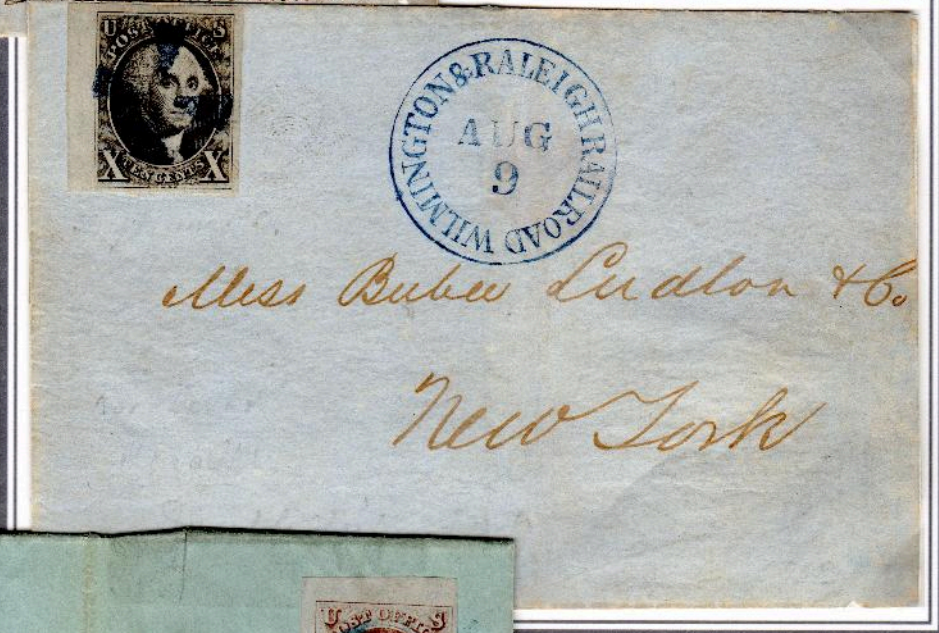 U S
POST OFFICE
X TEN CENTS X
WILMINGTON & RALEIGH RAILROAD
AUG
9
Mess Ludlow & Co
New York
U S
POST OFFIC